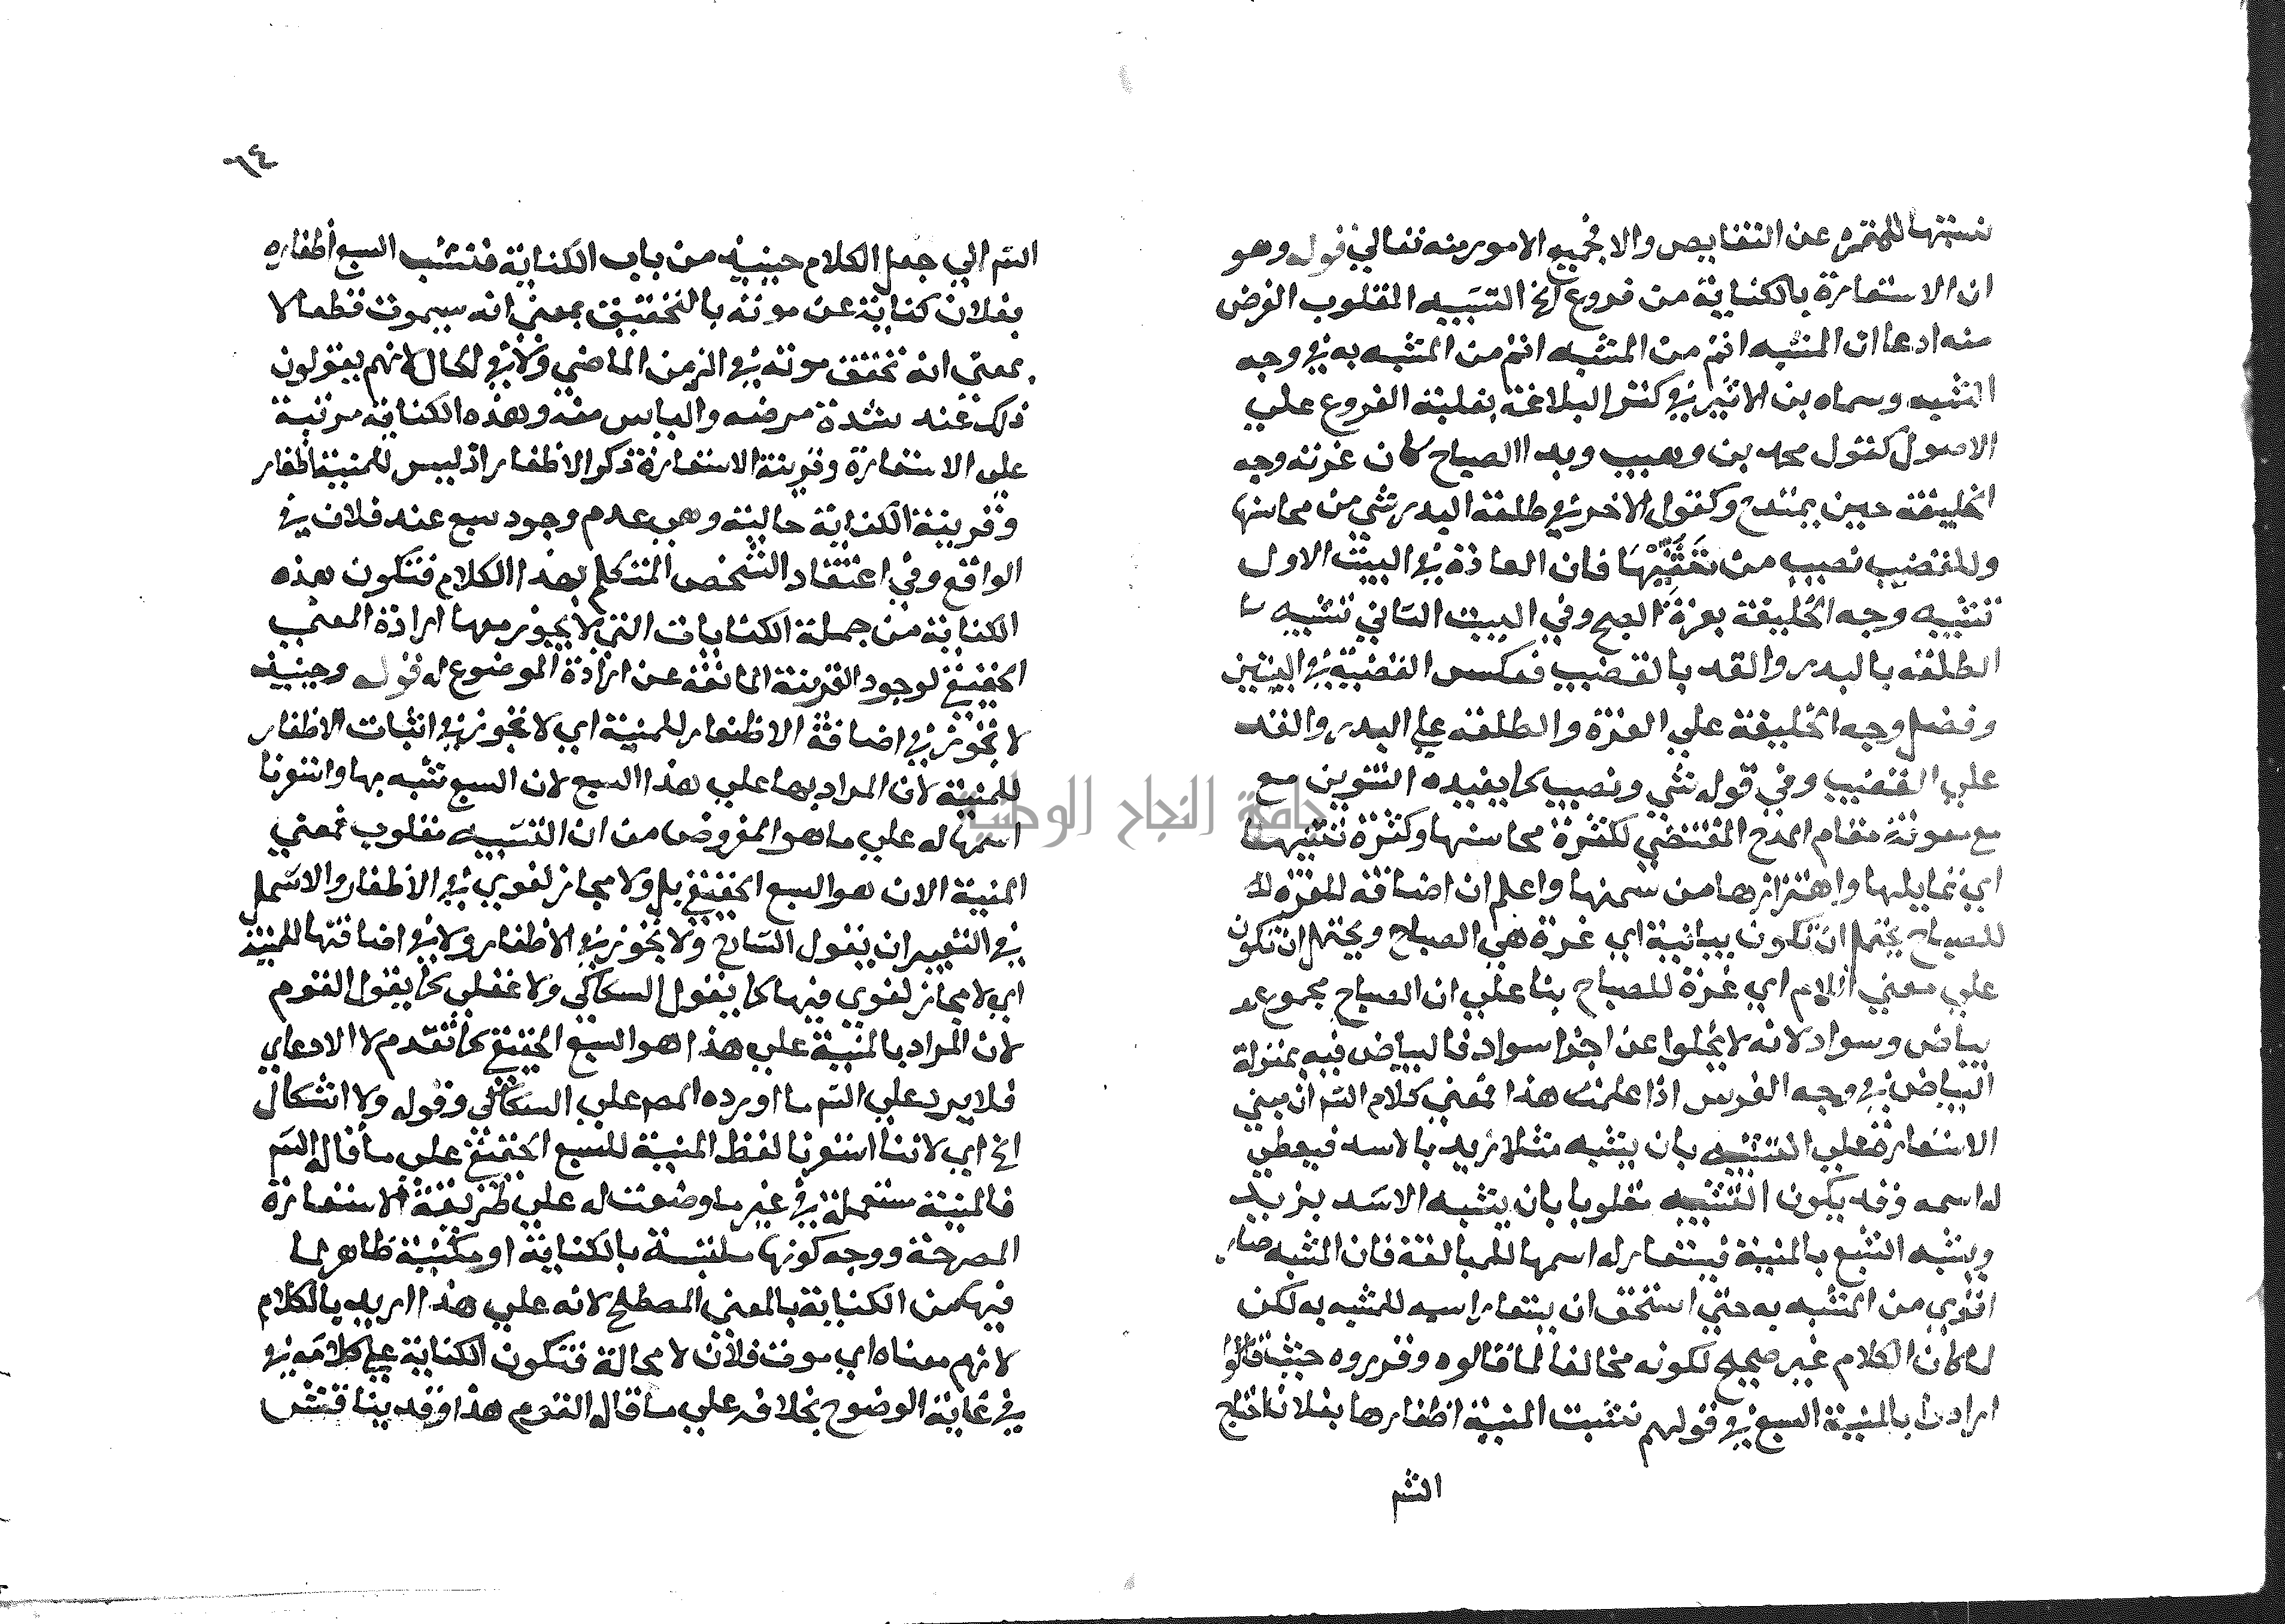 نسبتها للمنزه عن النقايص والا فجميع الامور منه تعالي قوله وهو
ان الاستعارة بالكناية من فروع الخ التشبيه المقلوب الغرض
منه ادعا ان المشبه اتم من المشبه اتم من المشبه به في وجه
التشبيه وسماه بن الاثير في كنز البلاغة بغلبة الفروع علي
الاصول كقول محمد بن وهيب وبدا الصباح كان غرته وجه
الخليفة حين يمتدح وكقول الاخر في طلعة البدر شي من محاسنها
وللقضيب نصيب من تثنيها فان العادة في البيت الاول
تشبيه وجه الخليفة بغرة الصبح وفي البيت الثاني تشبيه
الطلعة بالبدر والقد بالقضيب فعكس القضية في البيتين
وفضل وجه الخليفة علي الغرة والطلعة علي البدر والقد
علي القضيب وفي قوله شي ونصيب كما يفيده التنوين مع
مع معونة مقام المدح المقتضي لكثرة محاسنها وكثرة تثنيها
اي تمايلها واهتزازها من سمنها واعلم ان اضافة للغرة
للصباح يحتمل ان تكون بيانية اي غرة هي الصباح ويحتمل ان تكون
علي معني اللام اي غرة للصباح بنا علي ان الصباح مجموع
بياض وسواد لانه لا يخلوا عن اجزا سواد فالبياض فيه بمنزلة
البياض في وجه الفرس اذا علمت هذا فمعني كلام الشم ان مبني
الاستعارة علي التشبيه بان يشبه مثلا زيد بالاسد فيعطي
له اسمه وقد يكون التشبيه مقلوبا بان يشبه الاسد بزيد
ويشبه السبع بالمنية فيستعار له اسمها للمبالغة فان المشبه صار
اقوي من المشبه به حتي استحق ان يستعار اسمه للمشبه به لكن
لما كان الكلام غير صحيح لكونه مخالفا لما قالوه وقرروه حيث قالوا
ارادوا بالمنية السبع في قولهم نشبت المنية اظفارها بفلان احتاج
الشم
٦٤
الشم الي جعل الكلام حينيذ من باب الكناية فنشب السبع أظفاره
بفلان كناية عن موته بالتحقيق بمعني انه سيموت قطعا لا
بمعني انه تحقق موته في الزمن الماضي ولا في الحال لانهم يقولون
ذلك عند شدة مرضه والياس منه وهذه الكناية مرتبة
علي الاستعارة وقرينة الاستعارة ذكر الاظفار اذ ليس للمنية اظفار
وقرينة الكناية حالية وهي عدم وجود سبع عند فلان في
الواقع وفي اعتقاد الشخص المتكلم بهذا الكلام فتكون هذه
الكناية من جملة الكنايات التي لا يجوز معها ارادة المعني
الحقيقي لوجود القرينة المانعة عن ارادة الموضوع له قوله وحينيذ
لا تجوز في اضافة الاظفار للمنية اي لا تجوز في اثبات الاظفار
للمنية لان المراد بها علي هذا السبع لان السبع شبه بها واستعرنا
اسمها له علي ما هو المفروض من ان التشبيه مقلوب فمعني
المنية الان هو السبع الحقيقي بل ولا مجاز لغوي في الاظفار والاشمل
في التعبير ان يقول الشارح ولا تجوز في الاظفار ولا في اضافتها للمنية
اي لا مجاز لغوي فيها كما يقول السكاكي ولا عقلي كما يقول القوم
لان المراد بالمنية علي هذا هو السبع الحقيقي كما تقدم لا الادعاي
فلا يرد علي الشم ما اورده المصم علي السكاكي وقوله ولا اشكال
الخ اي لاننا استعرنا لفظ المنية للسبع الحقيقي علي ما قاله الشم
فالمنية مستعملة في غير ما وضعت له علي طريقة الاستعارة
المصرحة ووجه كونها ملتبسة بالكناية او مكنية ظاهر لما
فيها من الكناية بالمعني المصطلح لانه علي هذا اريد بالكلام
لازم معناه اي موت فلان لا محالة فتكون الكناية علي كلامه في
في غاية الوضوح بخلافه علي ما قال القوم هذا وقد يناقش
جامعة النجاح الوطنية